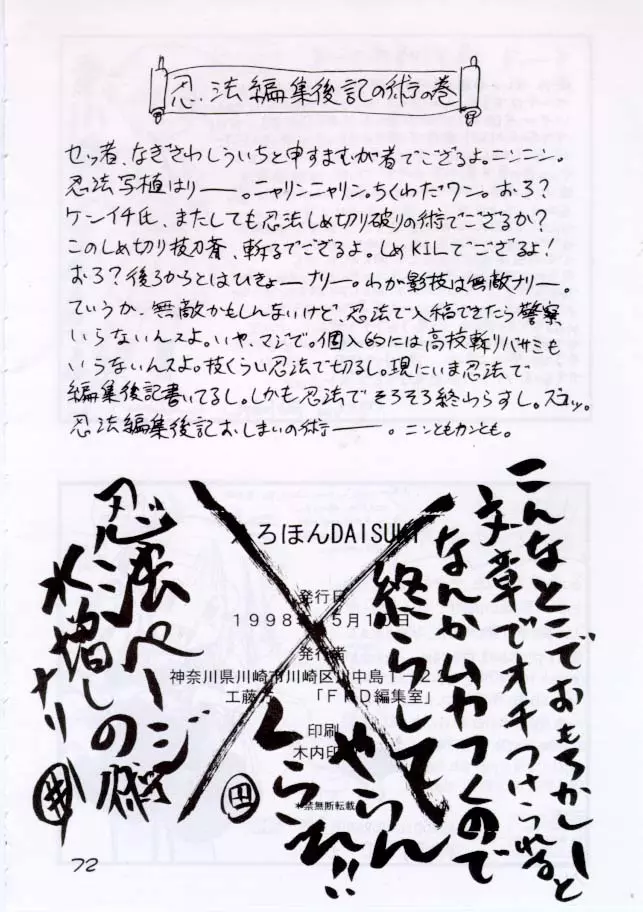 忍法編集後記の術の巻
せっ者、なぎさわしういちと申すまむが者でござるよ。ニンニン。
忍法写植はりー。ニャリンニャリン。ちくわだワン。おろ?
ケンイチ氏、またしても忍法しめ切り破りの術でござるか?
このしめ切り抜刀斎、斬るでござるよ。しめKILでござるよ!
おろ?後ろからとはひきょーナリー。わが影技は無敵ナリー。
ていうか、無敵かもしんまいけど、忍法で入稿できたら警察
いらないんスよ。いや、マジで。個人的には高枝斬りバサミも
いらないんスよ。枝くらい忍法で切るし。現にいま忍法で
編集後記書いてるし。しかも忍法でそろそろ終わらすし。ズコッ。
忍法編集後記おしまいの術ー。ニンともカンとも。
こんなとこでおもろかしーと
文章でオチつけられると
なんかムカつくので
終らして
やらん
くらえ!!
田
忍法ページ
水増しの術
ナリ
井
えろほんDAISUKI
発行日
1998年5月10日
発行者
神奈川県川崎市川崎区川中島1-22
工藤 「FRD編集室」
印刷
木内印
*禁無断転載
72